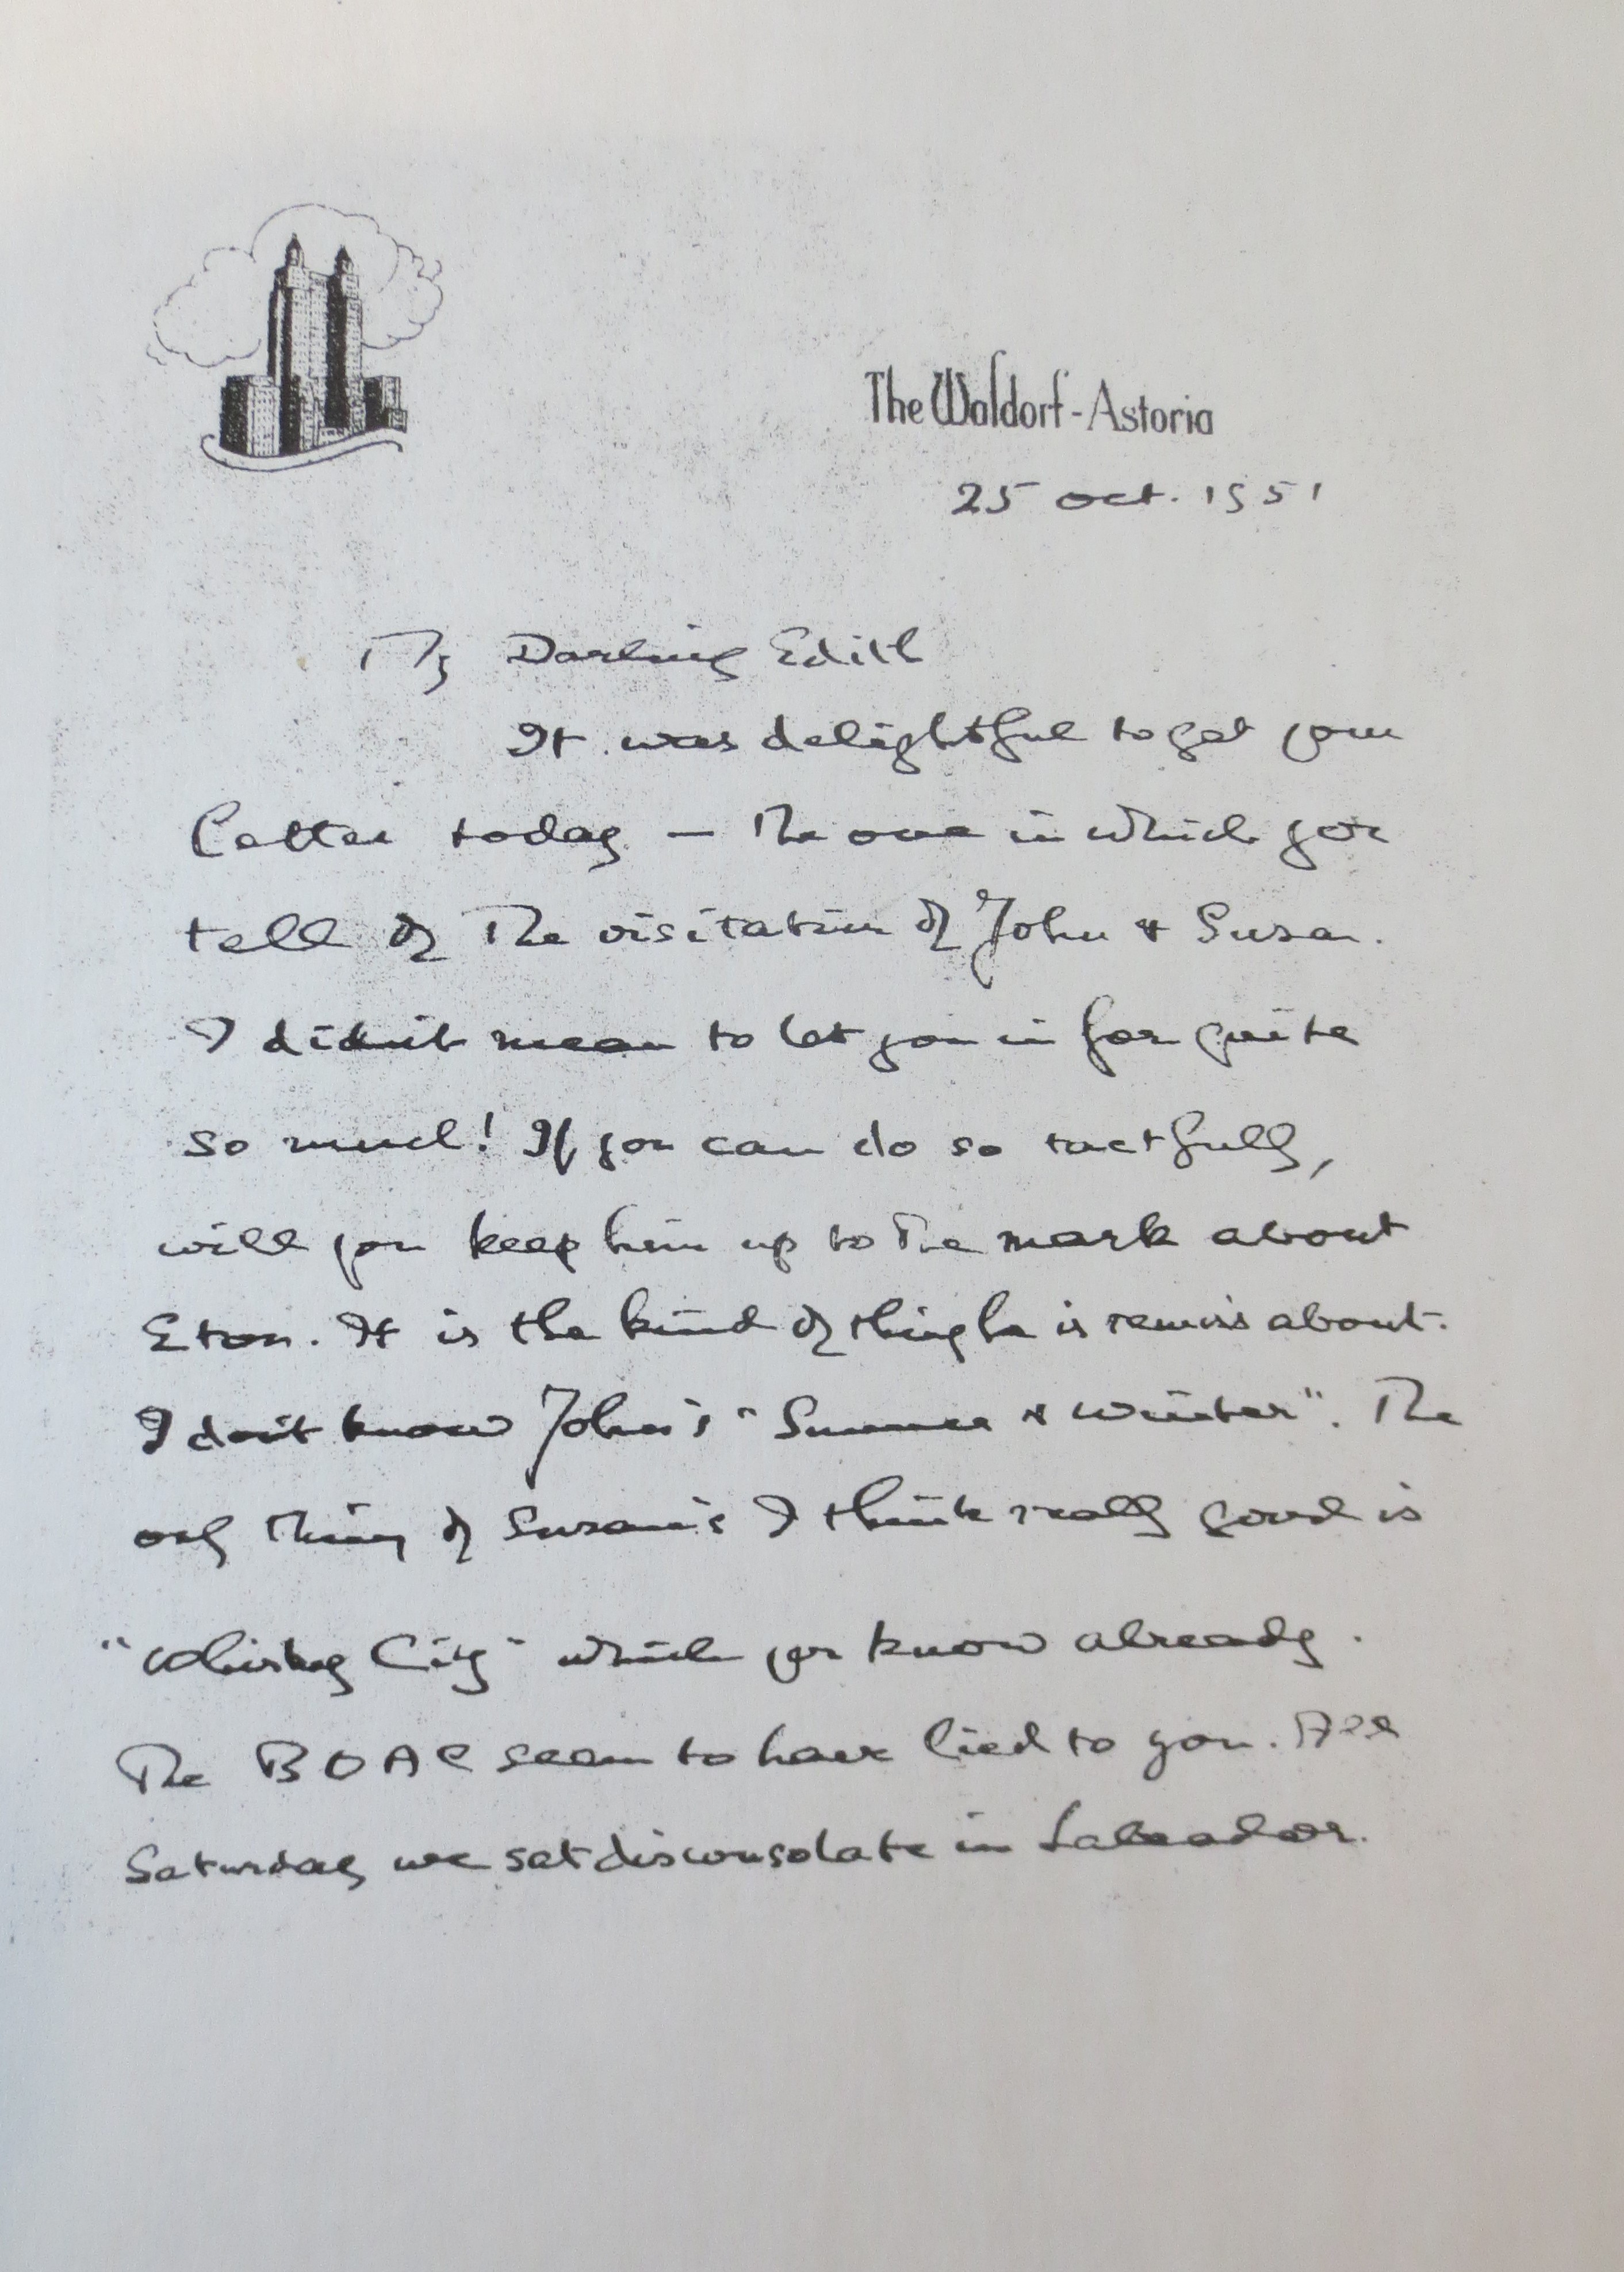 The Waldorf-Astoria
25 oct. 1951
My Darling Edith
It was delightful to get your
letter today — The one in which you
tell of The visitation of John & Susan.
I didn't mean to let you in for quite
so much! If you can do so tactfully,
will you keep him up to The mark about
Eton. It is the kind of thing he is remiss about.
I don't know John's "Summer & Winter". The
only Thing of Susan's I think really good is
"Whisky City" which you know already.
The BOAC seem to have lied to you. All
Saturday we sat disconsolate in Labrador.